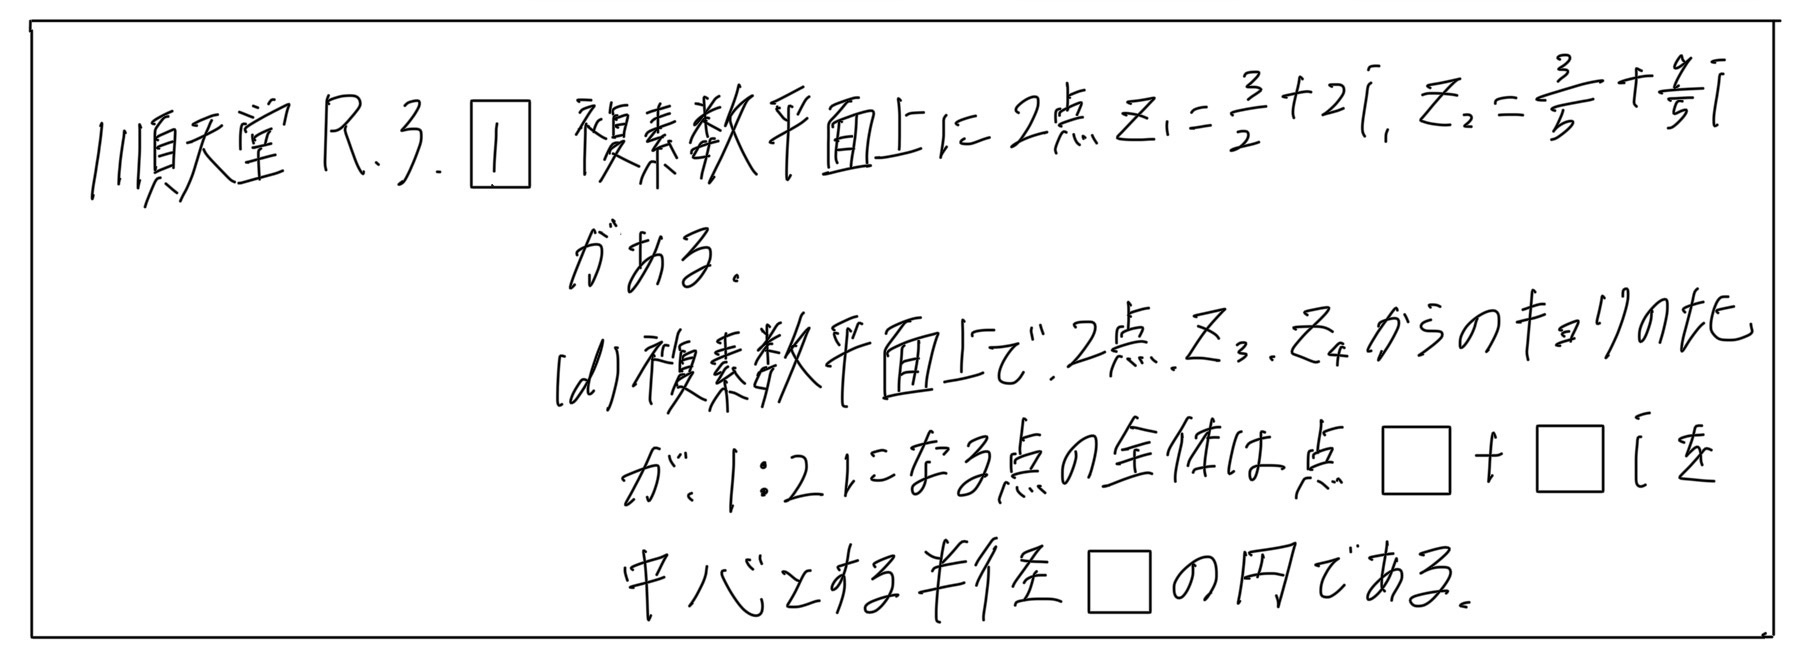 順天堂 R.3. 1 複素数平面上に2点 z₁ = 3/2 + 2i, z₂ = 3/5 + 9/5 i
がある.
(d) 複素数平面上で.2点.z₃.z₄からのキョリの比
が.1:2になる点の全体は点 □ + □ i を
中心とする半径 □ の円である.